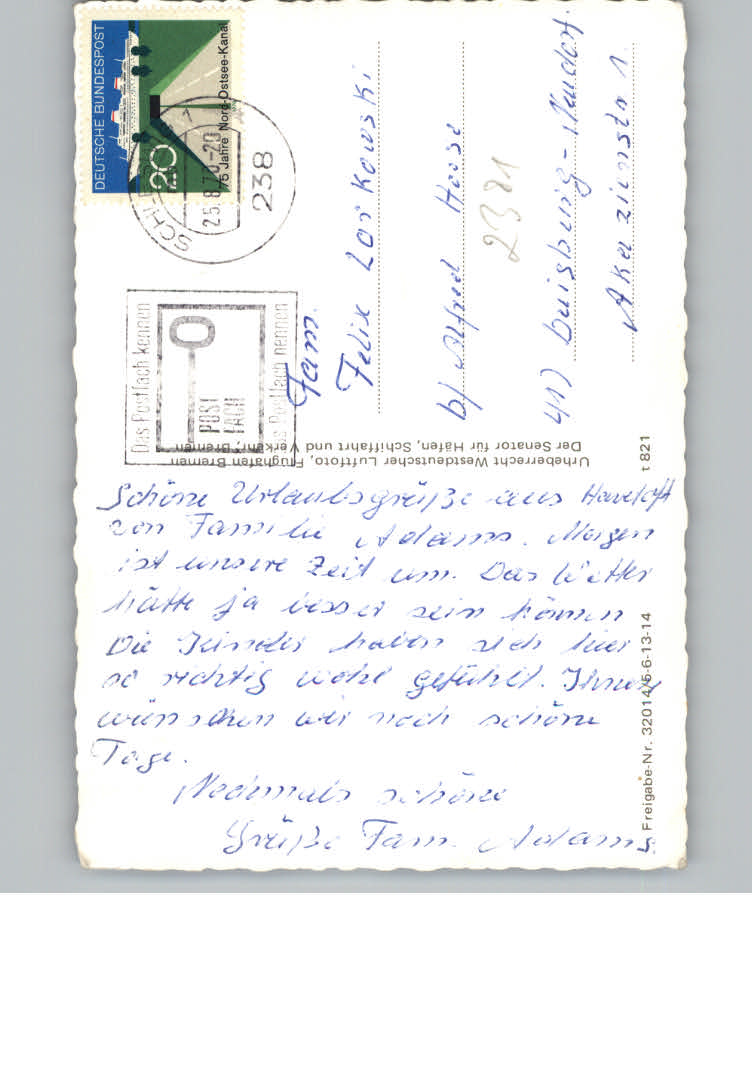 Schöne Urlaubsgrüße aus Havetoft
von Familie Adams. Morgen
ist unsere Zeit um. Das Wetter
hätte ja besser sein können
Die Kinder haben sich hier
so richtig wohl gefühlt. Ihnen
wünschen wir noch schöne
Tage.
Nochmals schöne
Grüße Fam. Adams.
Fam.
Felix Lorkowski
b/ Alfred Haase
2381
41) Duisburg-Neudorf.
Akazienstr 1.
DEUTSCHE BUNDESPOST
20
75 Jahre Nord-Ostsee-Kanal
25.8.70-20
238
Das Postfach kennen
POST
FACH
das Postfach nennen
Urheberrecht Westdeutscher Luftfoto, Flughafen Bremen
Der Senator für Häfen, Schiffahrt und Verkehr, Bremen
t 821
Freigabe-Nr. 32014/5-6-13-14